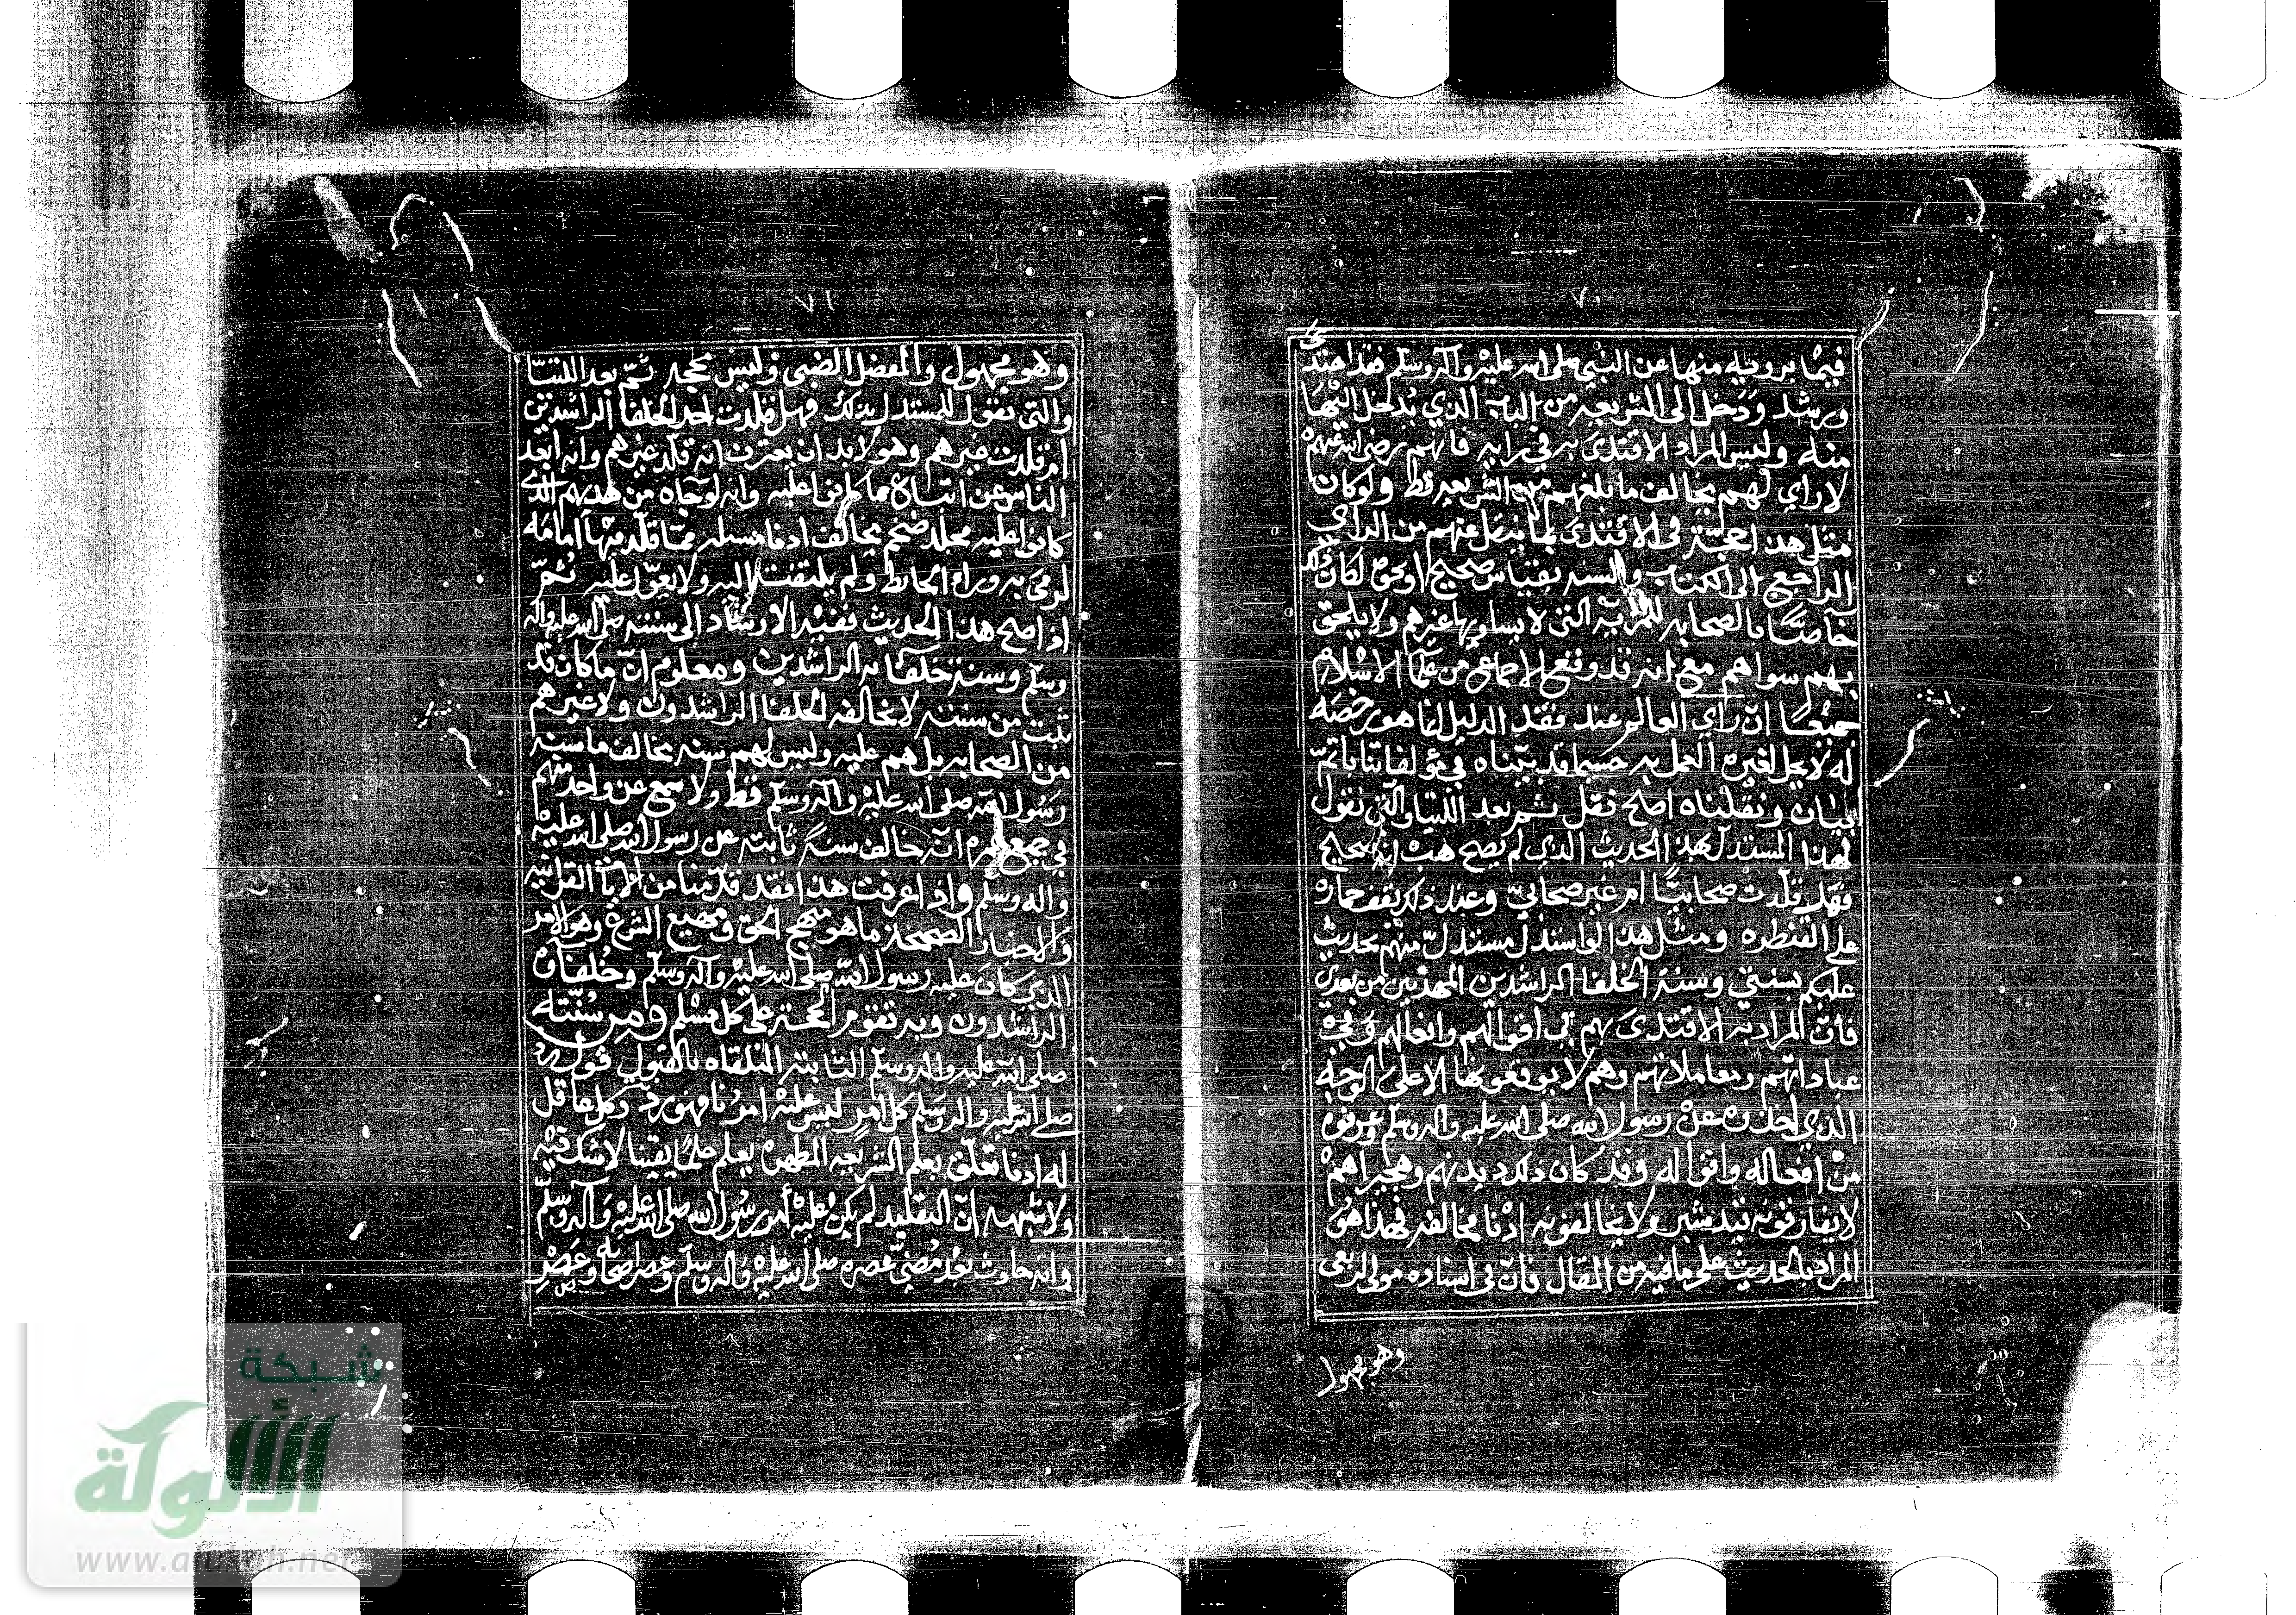 ٧٠
فيما يرويه منها عن النبي صلى الله عليه وآله وسلم فقد اهتدى
ورشد ودخل الى الشريعه من الباب الذي يدخل اليها
منه وليس المراد الاقتدى به في رايه فانهم رضي الله عنهم
لا راي لهم يخالف ما بلغهم من الشريعه قط ولو كان
مثل هذا حجة في الاقتدى بما ينقل عنهم من الراي
الراجع الى الكتاب والسنه بقياس صحيح او نحوه لكان ذلك
خاصا بالصحابه للمزيه التي لا يساويها غيرهم ولا يلحق
بهم سواهم مع انه قد وقع الاجماع من علما الاسلام
جميعا ان راي العالم عند فقد الدليل انما هو رخصه
له لا يحل لغيره العمل به حسبما قد بيناه في مؤلفاتنا باتم
بيان ونقلناه اصح نقل ثم بعد اللتيا والتي نقول
لهذا المستدل بهذا الحديث الذي لم يصح هب انه صحيح
فهل قلدت صحابيا ام غير صحابي وعند ذلك يقف حماره
على القنطره ومثل هذا لو استدل مستدل منهم بحديث
عليكم بسنتي وسنة الخلفا الراشدين المهديين من بعدي
فان المراد به الاقتدى بهم في اقوالهم وافعالهم وفي
عباداتهم ومعاملاتهم وهم لا يوقعونها الا على الوجه
الذي اخذوه عن رسول الله صلى الله عليه وآله وسلم وعرفوه
من افعاله واقواله وقد كان ذلك ديدنهم وهجيراهم
لا يفارقونه قيد شبر ولا يخالفونه ادنا مخالفه فهذا هو
المراد بالحديث على ما فيه من المقال فان في اسناده مولى الربعي
وهو مجهول
٧١
وهو مجهول والمفضل الضبي وليس بحجه ثم بعد اللتيا
والتي نقول للمستدل بذلك فهل قلدت احد الخلفا الراشدين
ام قلدت غيرهم وهو لا بد ان يعترف انه قلد غيرهم وانه ابعد
الناس عن اتباع ما كانوا عليه وانه لو جاه من هديهم الذي
كانوا عليه مجلد ضخم يخالف ادنا مسئله مما قلد فيها امامه
لرمى به وراء الحائط ولم يلتفت اليه ولا يعول عليه ثم
اذا صح هذا الحديث ففيه الارشاد الى سنته صلى الله عليه وآله
وسلم وسنة خلفائه الراشدين ومعلوم ان ما كان قد
ثبت من سنته لا يخالفه الخلفا الراشدون ولا غيرهم
من الصحابه بل هم عليه وليس لهم سنه تخالف ما سنه
رسول الله صلى الله عليه وآله وسلم قط ولا سمع عن واحد منهم
في جميع عمره انه خالف سنة ثابته عن رسول الله صلى الله عليه
وآله وسلم واذا عرفت هذا فقد قدمنا من الايات القرانيه
والاحاديث الصحيحه ما هو منهج الحق ومهيع الشرع وهو الامر
الذي كان عليه رسول الله صلى الله عليه وآله وسلم وخلفاؤه
الراشدون وبه تقوم الحجة على كل مسلم ومن سنته
صلى الله عليه وآله وسلم الثابته المتلقاه بالقبول قوله
صلى الله عليه وآله وسلم كل امر ليس عليه امرنا فهو رد وكل عاقل
له ادنا تعلق بعلم الشريعه المطهره يعلم علما يقينا لا شك فيه
ولا شبهه ان التقليد لم يكن عليه امر رسول الله صلى الله عليه وآله وسلم
وانه حادث بعد مضي عصره صلى الله عليه وآله وسلم وعصر اصحابه وعصر
شبكة
الألوكة
www.alukah.net